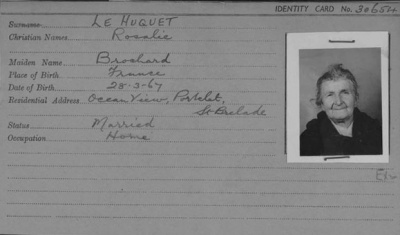 IDENTITY CARD No. 30654
Surname LE HUQUET
Christian Names Rosalie
Maiden Name Brochard
Place of Birth France
Date of Birth 28-3-67
Residential Address Ocean View, Portelet,
St Brelade
Status Married
Occupation Home